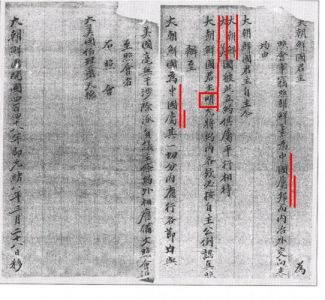 大朝鮮國君主 為
照會事竊照朝鮮素為中國屬邦而內治外交向來
均由
大朝鮮國君主自主今
大朝鮮
大美國彼此立約俱屬平行相待
大朝鮮國君主明允將約內各款必按自主公例認真照
辦至
大朝鮮國為中國屬其一切分內應行各節均與
美國毫無干涉除派員議立條約外相應備文照會
至照會者
右照會
大美國伯理璽天德
大朝鮮國開國四百九十一年即光緒八年三月二十八日移